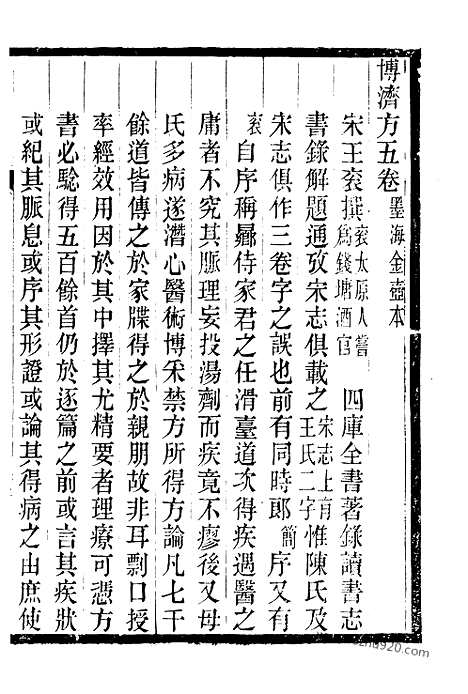 博濟方五卷墨海金壺本
宋王袞撰袞太原人嘗爲錢塘酒官 四庫全書著錄讀書志
書錄解題通攷宋志俱載之宋志上有王氏二字惟陳氏及
宋志俱作三卷字之誤也前有同時郎簡序又有
袞自序稱曩侍家君之任滑臺道次得疾遇醫之
庸者不究其脈理妄投湯劑而疾竟不瘳後又母
氏多病遂潛心醫術博釆禁方所得方論凡七千
餘道皆傳之於家牒得之於親朋故非耳剽口授
率經效用因於其中擇其尤精要者理療可憑方
書必騐得五百餘首仍於逐篇之前或言其疾狀
或紀其脈息或序其形證或論其得病之由庶使